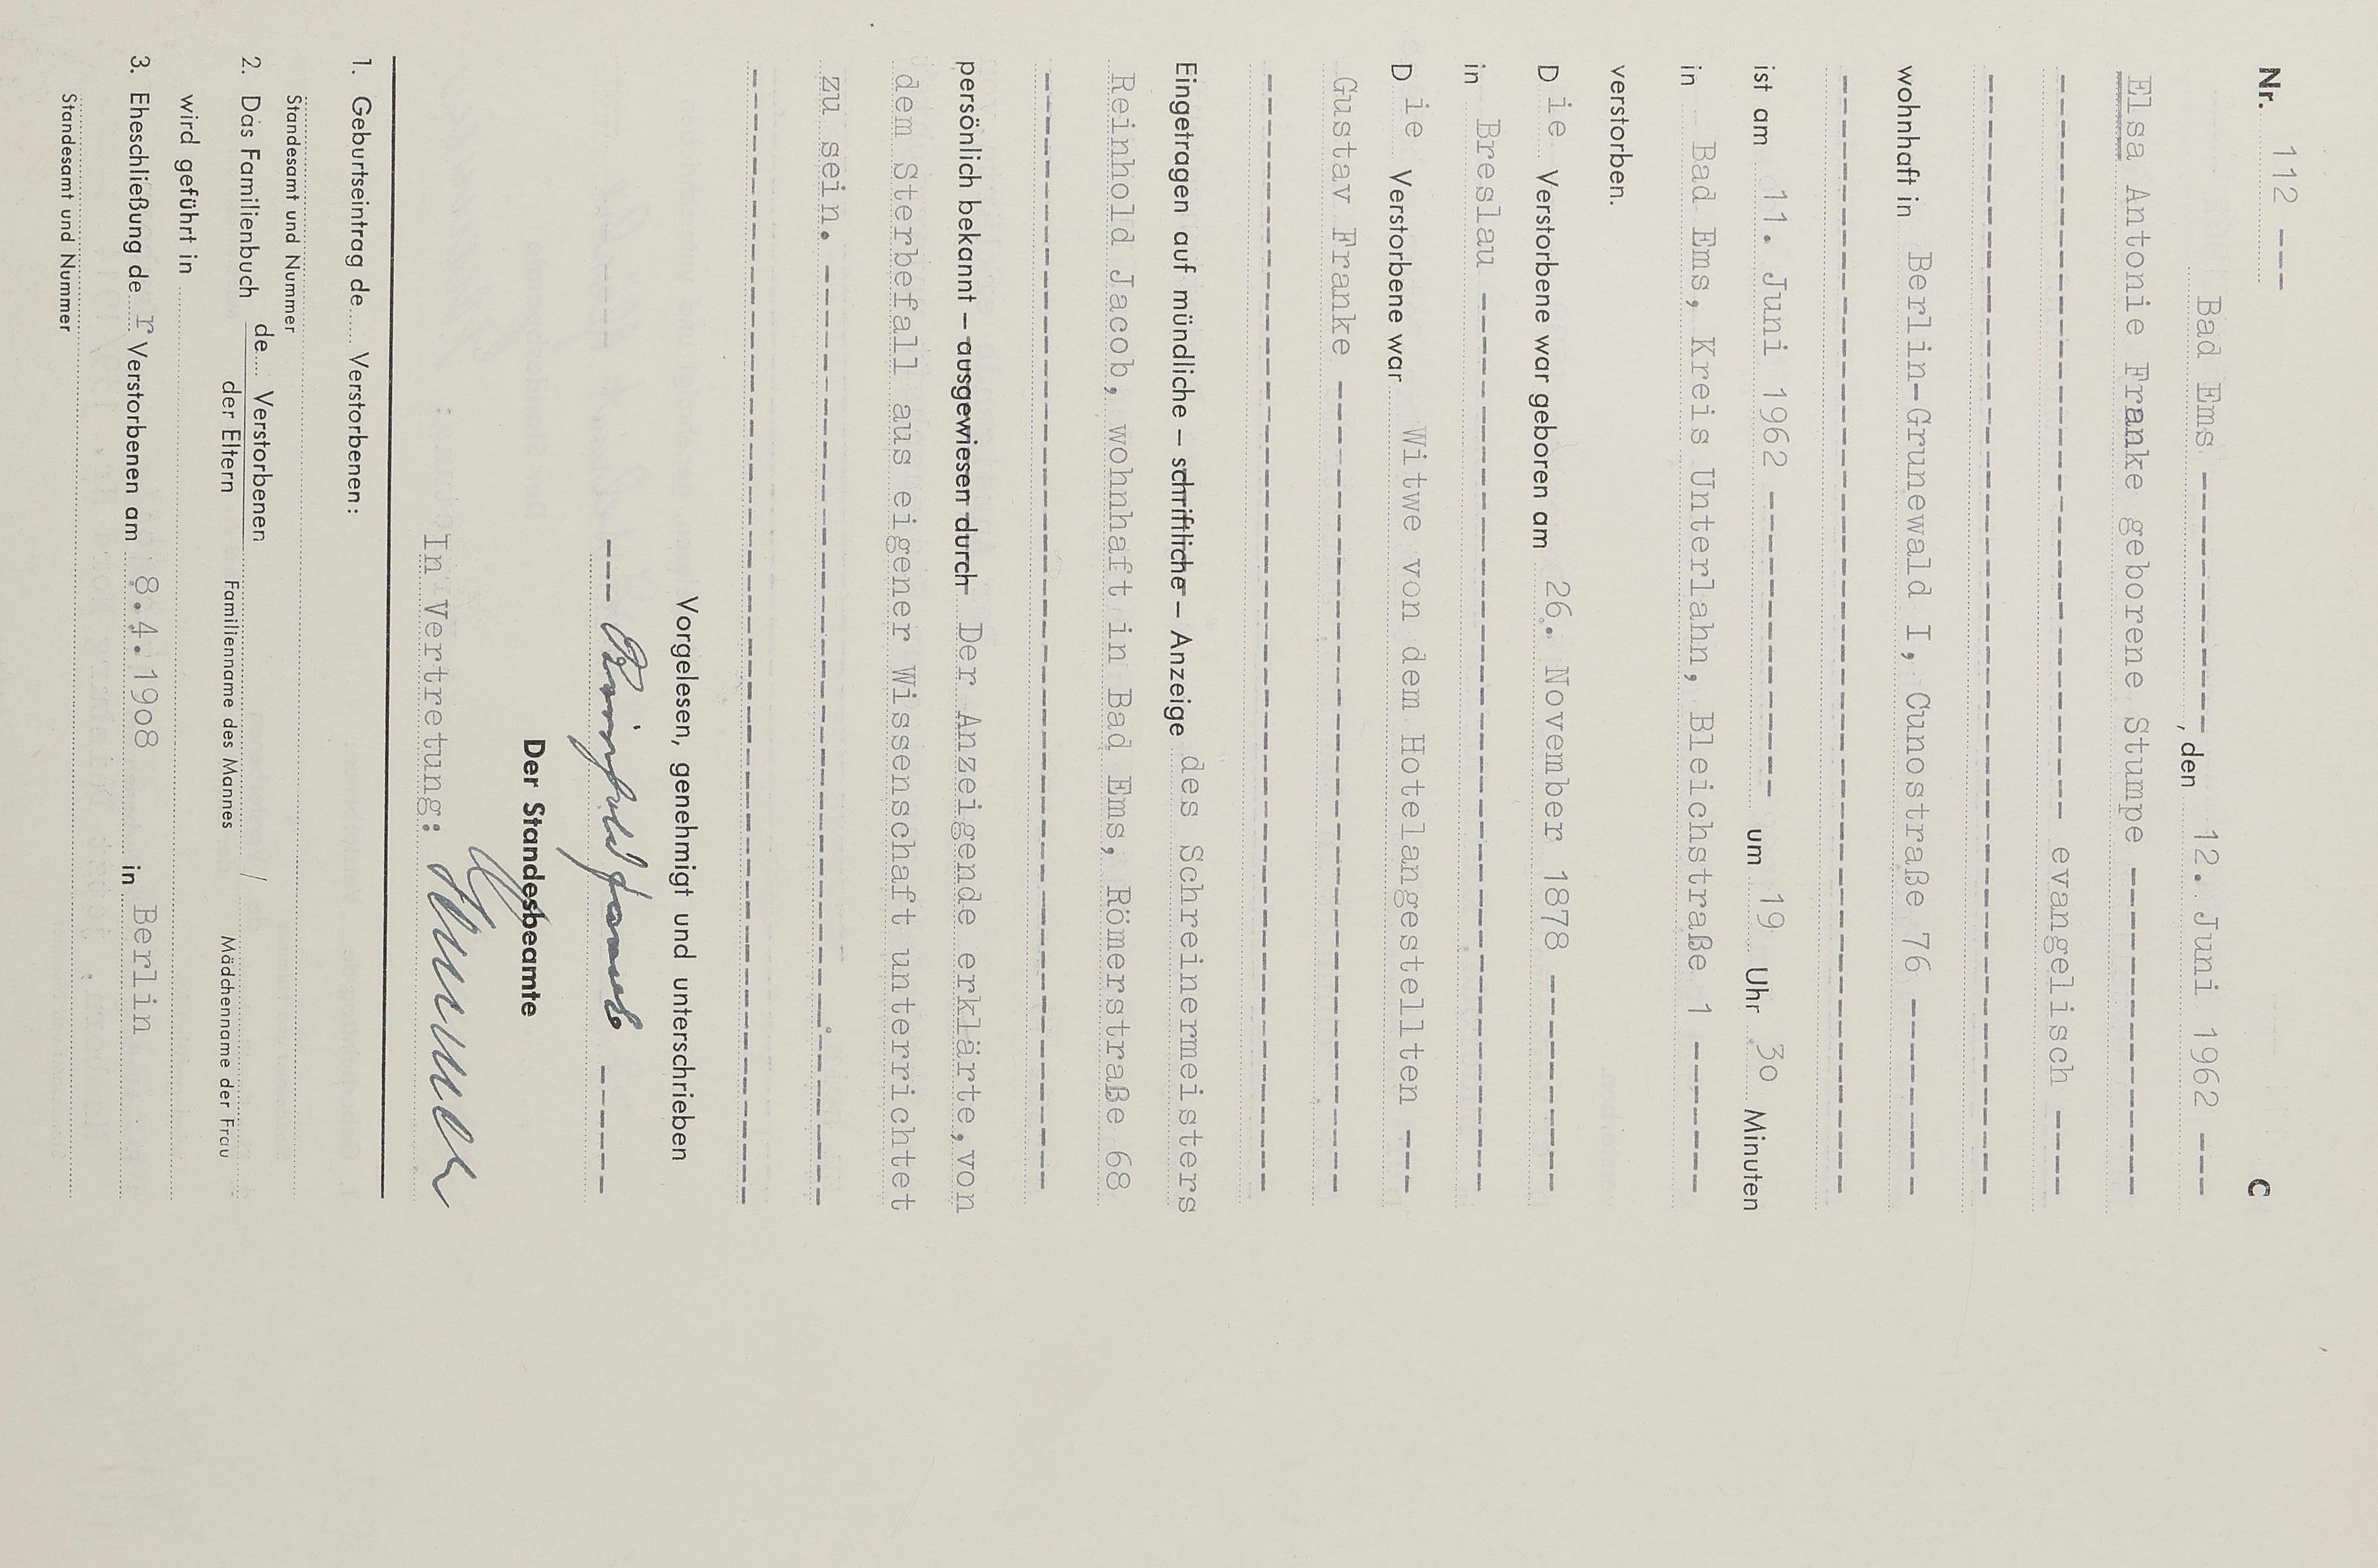 C
Nr. 112 ---
Bad Ems ----------, den 12. Juni 1962 ---
Elsa Antonie Franke geborene Stumpe
evangelisch ----
wohnhaft in Berlin-Grunewald I, Cunostraße 76
ist am 11. Juni 1962 um 19 Uhr 30 Minuten
in Bad Ems, Kreis Unterlahn, Bleichstraße 1
verstorben.
Die Verstorbene war geboren am 26. November 1878
in Breslau
Die Verstorbene war Witwe von dem Hotelangestellten ---
Gustav Franke
Eingetragen auf mündliche – schriftliche – Anzeige des Schreinermeisters
Reinhold Jacob, wohnhaft in Bad Ems, Römerstraße 68
persönlich bekannt – ausgewiesen durch Der Anzeigende erklärte, von
dem Sterbefall aus eigener Wissenschaft unterrichtet
zu sein.
Vorgelesen, genehmigt und unterschrieben
--- Reinhold Jacob -----
Der Standesbeamte
In Vertretung:
1. Geburtseintrag de Verstorbenen:
Standesamt und Nummer
2. Das Familienbuch de Verstorbenen
der Eltern Familienname des Mannes / Mädchenname der Frau
wird geführt in
3. Eheschließung der Verstorbenen am 8.4.1908 in Berlin
Standesamt und Nummer